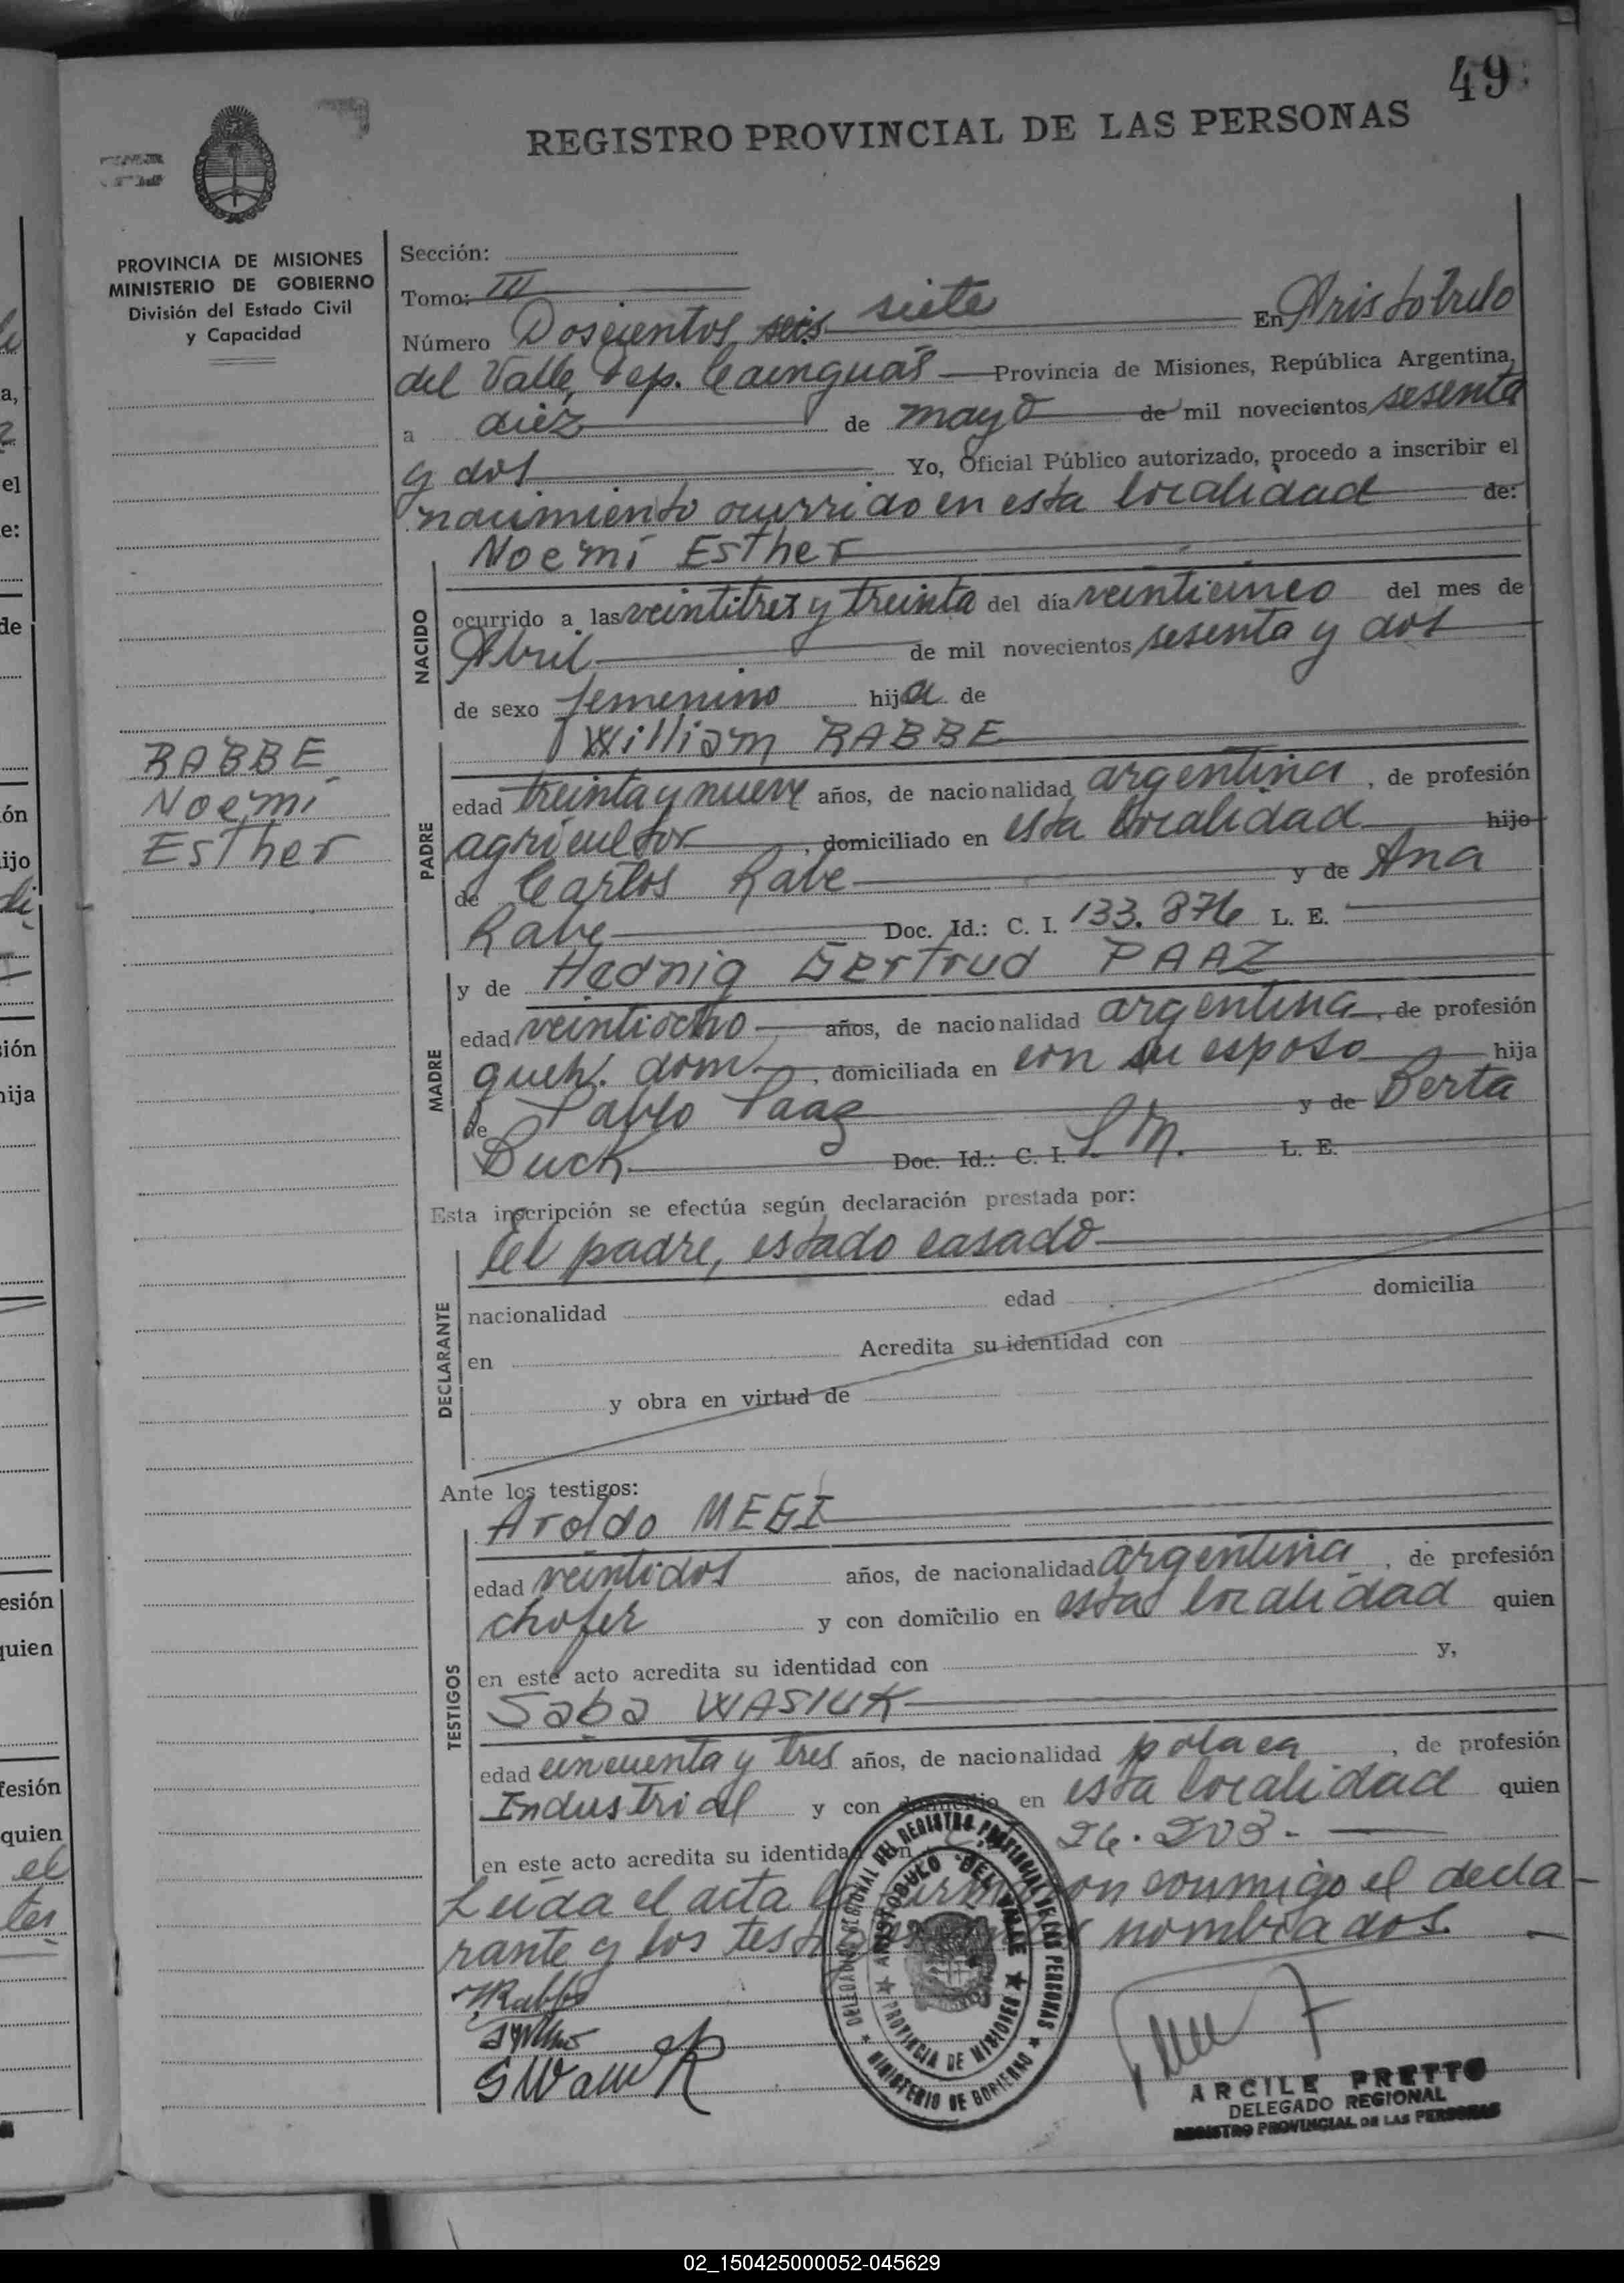 49
REGISTRO PROVINCIAL DE LAS PERSONAS
PROVINCIA DE MISIONES
MINISTERIO DE GOBIERNO
División del Estado Civil
y Capacidad
Sección:
Tomo: III
Número Doscientos seis siete En Aristobulo
del Valle, Dep. Cainguás Provincia de Misiones, República Argentina,
a diez de mayo de mil novecientos sesenta
y dos Yo, Oficial Público autorizado, procedo a inscribir el
nacimiento ocurrido en esta localidad de:
Noemí Esther
NACIDO
ocurrido a las veintitres y treinta del día veinticinco del mes de
Abril de mil novecientos sesenta y dos
de sexo femenino hija de
William RABBE
RABBE
Noemí
Esther
PADRE
edad treinta y nueve años, de nacionalidad argentina, de profesión
agricultor, domiciliado en esta localidad hijo
de Carlos Rabe y de Ana
Rabe Doc. Id.: C. I. 133.876 L. E.
y de Hednig Gertrud PAAZ
MADRE
edad veintiocho años, de nacionalidad argentina, de profesión
queh. dom., domiciliada en con su esposo hija
de Pablo Paaz y de Berta
Buck Doc. Id.: C. I. L. E.
Esta inscripción se efectúa según declaración prestada por:
el padre, estado casado
DECLARANTE
nacionalidad edad domicilia
en Acredita su identidad con
y obra en virtud de
Ante los testigos:
Aroldo MEGI
TESTIGOS
edad veintidos años, de nacionalidad argentina, de profesión
chofer y con domicilio en esta localidad quien
en este acto acredita su identidad con y,
Saba WASIUK
edad cincuenta y tres años, de nacionalidad polaca, de profesión
Industrial y con domicilio en esta localidad quien
en este acto acredita su identidad con 26.203.-
Leida el acta la firman conmigo el decla-
rante y los testigos nombrados.
DELEGACION REGIONAL DEL REGISTRO PROVINCIAL DE LAS PERSONAS
MINISTERIO DE GOBIERNO
ARISTOBULO DEL VALLE
PROVINCIA DE MISIONES
ARCILE PRETTO
DELEGADO REGIONAL
REGISTRO PROVINCIAL DE LAS PERSONAS
02_150425000052-045629